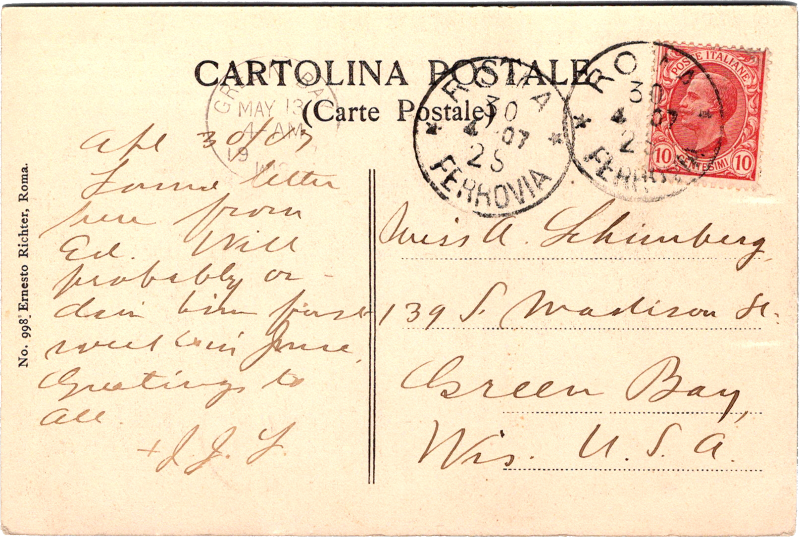 CARTOLINA POSTALE
(Carte Postale)
GREEN BAY
MAY 13
4 - AM
19
ROMA
30
4 - 07
2S
FERROVIA
ROMA
30
4 - 07
2S
FERROVIA
POSTE ITALIANE
10 CENTESIMI 10
No. 998. Ernesto Richter, Roma.
Apl 30/07
Found letter
here from
Ed. Will
probably or-
dain him first
week in June.
Greetings to
all.
+ J. J. F.
Miss A. Schimberg,
139 S. Madison St.
Green Bay,
Wis. U.S.A.